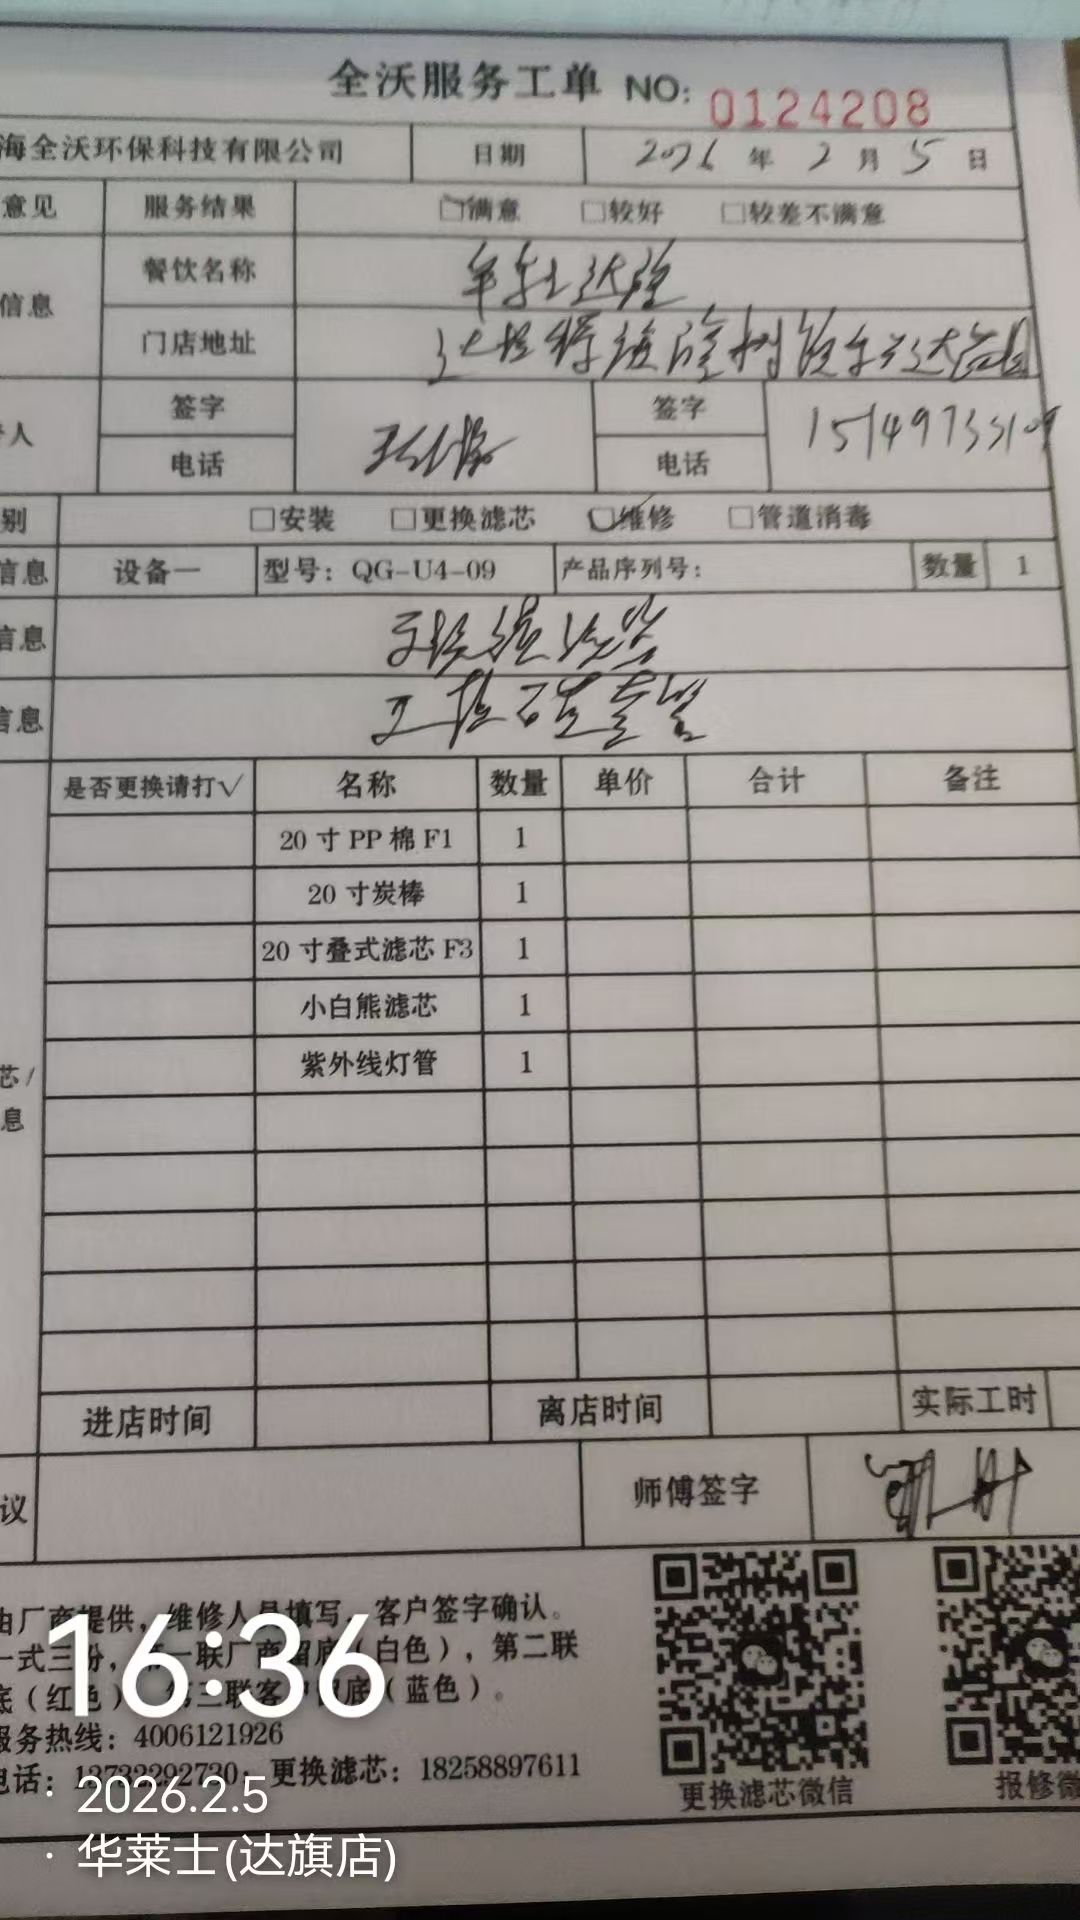 全沃服务工单 NO: 0124208
海全沃环保科技有限公司 日期 2026 年 2 月 5 日
意见 服务结果 □满意 □较好 □较差不满意
信息 餐饮名称
门店地址
人 签字 签字
电话 电话
别 □安装 □更换滤芯 □维修 □管道消毒
信息 设备一 型号：QG-U4-09 产品序列号： 数量 1
信息
信息
是否更换请打√ 名称 数量 单价 合计 备注
20 寸 PP 棉 F1 1
20 寸炭棒 1
20 寸叠式滤芯 F3 1
小白熊滤芯 1
紫外线灯管 1
芯/
息
进店时间 离店时间 实际工时
议 师傅签字
由厂商提供，维修人员填写，客户签字确认。
一式三份，第一联厂商留底（白色），第二联
底（红色），第三联客户留底（蓝色）。
服务热线：4006121926
电话：13732292730；更换滤芯：18258897611
更换滤芯微信 报修微
16:36
2026.2.5
· 华莱士(达旗店)